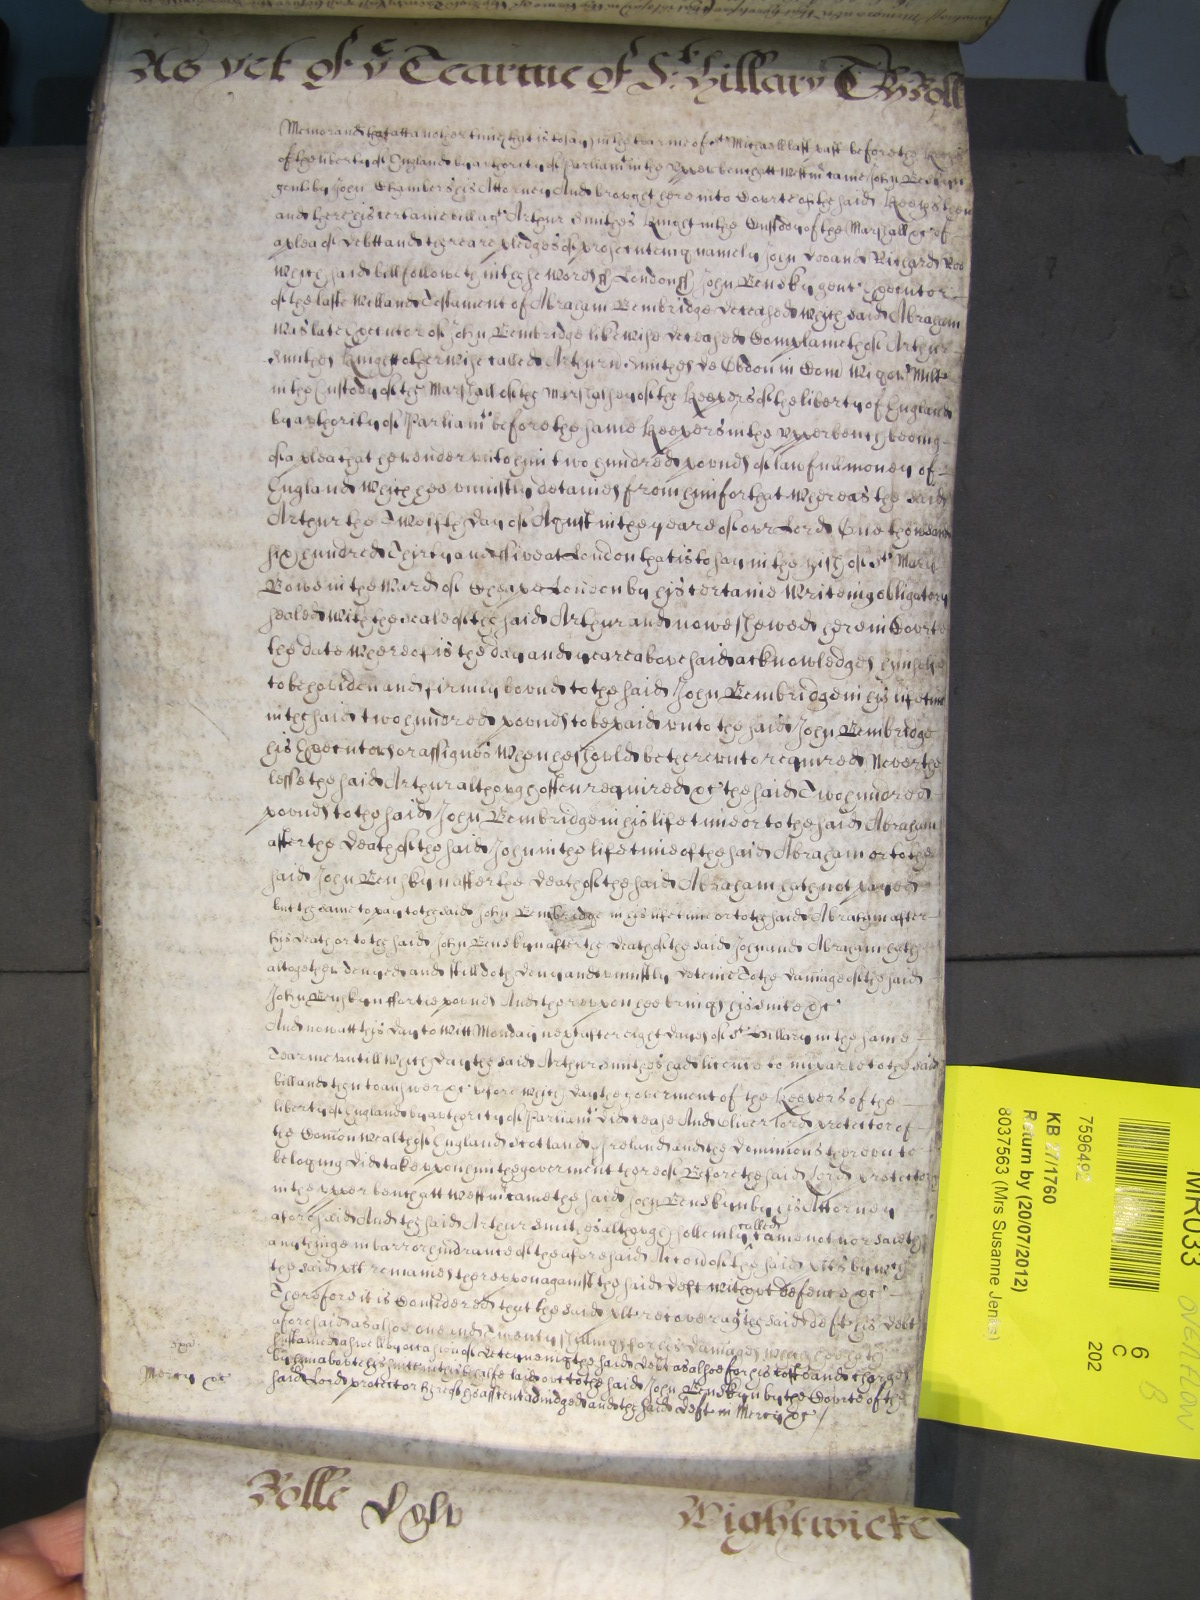 As yet of ye Tearme of St Hillary
Memorand that att another time that is to say in the tearme of St Michaell last past before the
of the liberty of England by authority of Parliamt in the upper bench att Westmr came John Benskyn
gent by John Chambers his Attorney And brought here into Courte of the said Keepers then
and there his certaine bill agt Arthur Smithes Knight in the Custody of the Marshall &c of
a plea of Debt and there are pledges of prosecuteing namely John Doo and Richard Roo
which said bill followeth in these words ss London ss John Benskyn gent Executor
of the laste Will and Testament of Abraham Bembridge deceased which said Abraham
was late Executor of John Bembridge likewise deceased Complaineth of Arthur
Smithes Knight otherwise called Arthurn Smithes de in Com Milit
in the Custody of the Marshall of the Marshalsey of the Keepers of the liberty of England
by authority of Parliamt before the same Keepers in the upper bench beeing
of a plea that he render unto him two hundred pounds of lawfull money of
England which hee uniustly detaines from him for that whereas the said
Arthur the Twelfth day of August in the yeare of our Lord One thousand
six hundred Thirty and ffive at London that is to say in the pish of St Marie
Bowe in the Ward of Cheape London by his certaine Writeing obligatory
sealed with the seale of the said Arthur and nowe shewed here in Courte
the date whereof is the day and yeare abovesaid acknowledged himselfe
to be holden and firmly bound to the said John Bembridge in his lifetime
in the said two hundred pounds to be paid unto the said John Bembridge
his Executors or assignes when he should be thereunto required Neverthe
lesse the said Arthur although often required &c the said Two hundred
pounds to the said John Bembridge in his life time or to the said Abraham
after the death of the said John in the life time of the said Abraham or to the
said John Benskyn after the death of the said Abraham hath not payed
but the same to pay to the said John Bembridge in his life time or to the said Abraham after
his death or to the said John Benskyn after the death of the said John and Abraham hath
altogether denyed and still doth deny and uniustly deteine To the damage of the said
John Benskyn ffortie pounds And thereupon hee brings his suite &c
And now att this day to witt Monday next after eight dayes of St Hillary in the same
Tearme untill which day the said Arthur Smithes had licence to imparle to the said
bill and then to answer &c before which day the goverment of the Keepers of the
liberty of England by authority of Parliamt did cease And Oliver lord protector of
the Comon wealth of England Scotland Ireland and the Dominions thereunto
beloging did take upon him the goverment thereof Before the said Lord protector
in the upper bench att Westmr came the said John Benskyn by his Attorney
aforesaid And the said Arthur Smithes although sollemly called came not nor saieth
any thinge in barr or hindrance of the aforesaid Accon of the said plt by wch
the said plt remaines thereupon against the said deft without defence &c
Therefore it is Considered that the said plt recover agt the said deft his debt
aforesaid as alsoe one and Twenty shillings for his damages which hee hath
susteined aswell by occasion of deteineing the said debt as alsoe for his costs and charges
by him about his suite in this behalfe laid out to the said John Benskyn by the Courte of the
said Lord protector here with his assent adiudged and the said deft in Mercy &c
Mercy &c
Rolle Wightwicke
7596492
KB 27/1760
Return by (20/07/2012)
8037563 (Mrs Susanne Jenks)
6
C
202
MR033
overflow